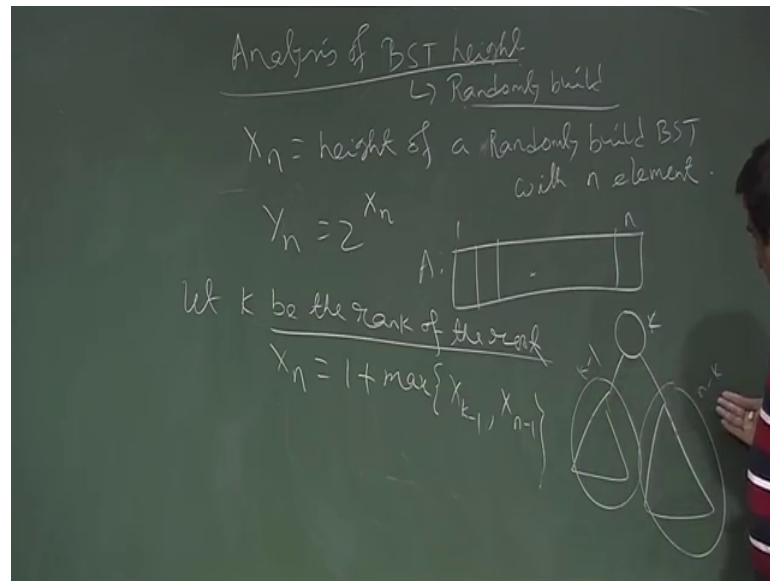 Analysis of BST height
↳ Randomly build
Xₙ = height of a Randomly build BST
with n element.
Yₙ = 2^Xₙ
1 n
A:
Let k be the rank of the root
k
Xₙ = 1 + max{Xₖ₋₁, Xₙ₋₁}
k-1
n-k